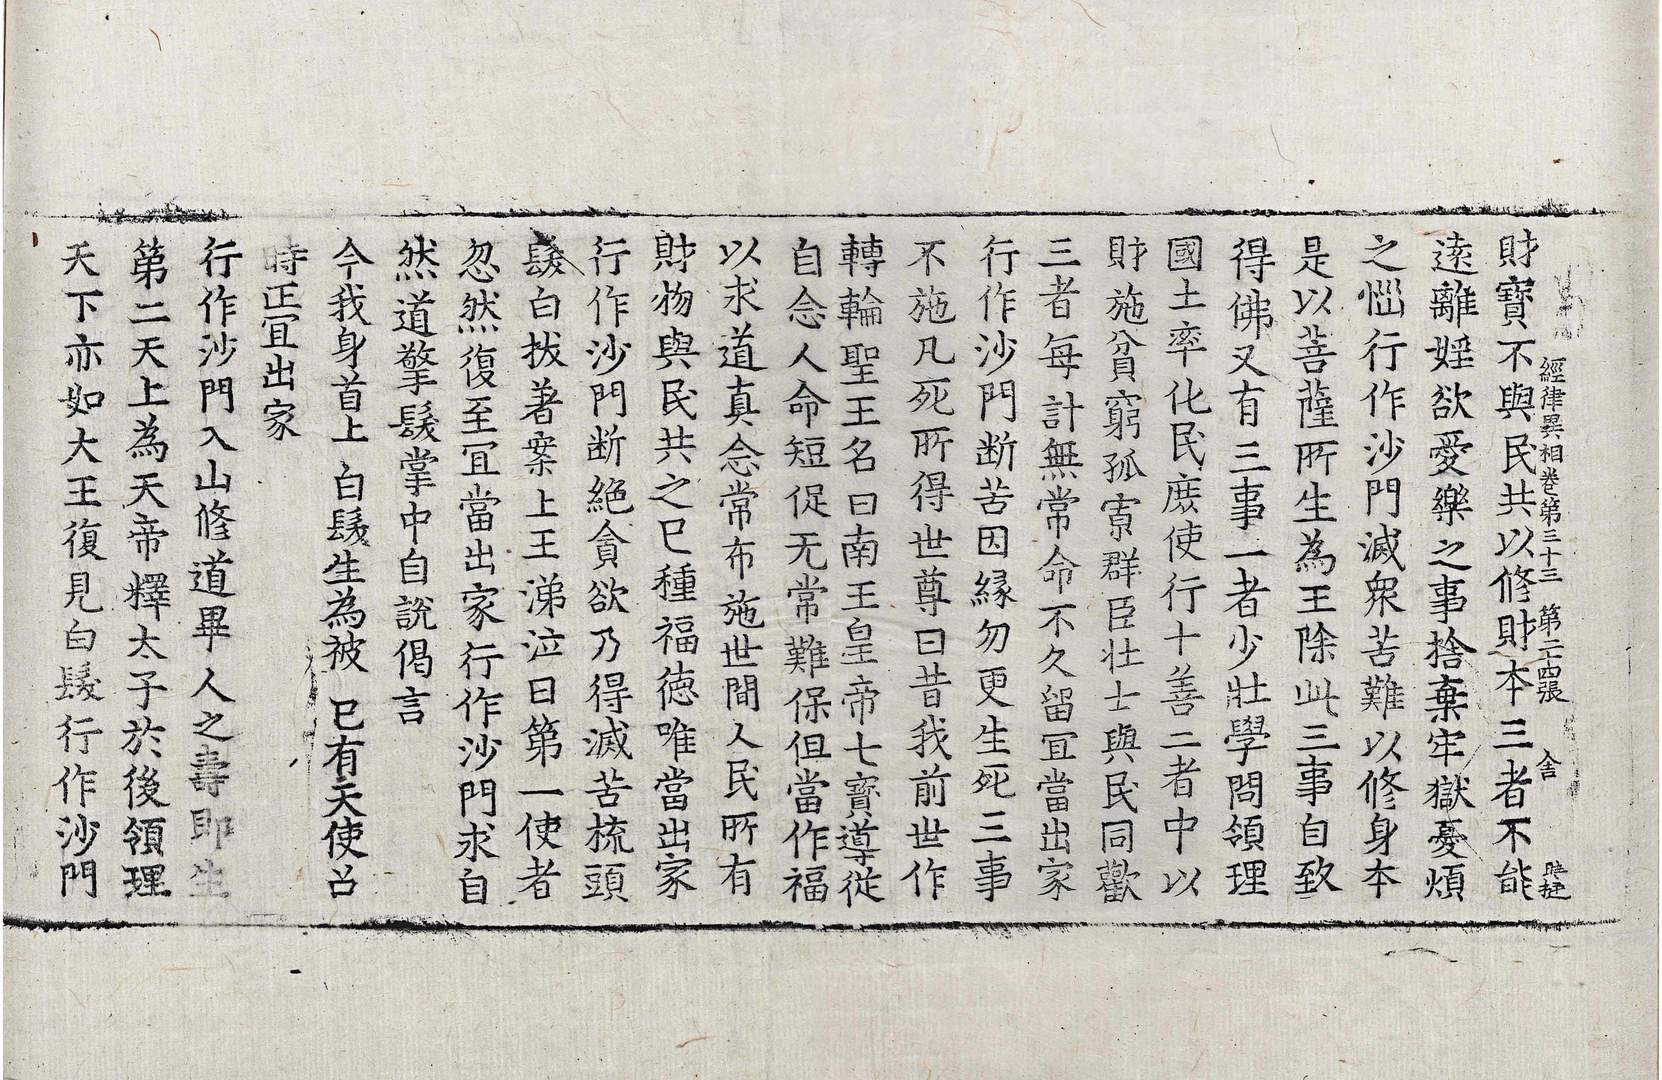 經律異相卷第三十三 第二十四張 舍
財寶不與民共以修財本三者不能
遠離婬欲愛樂之事捨棄牢獄憂煩
之惱行作沙門滅衆苦難以修身本
是以菩薩所生為王除此三事自致
得佛又有三事一者少壯學問領理
國土率化民庶使行十善二者中以
財施貧窮孤寡群臣壯士與民同歡
三者每計無常命不久留冝當出家
行作沙門断苦因縁勿更生死三事
不施凡死所得世尊曰昔我前世作
轉輪聖王名曰南王皇帝七寶導從
自念人命短促无常難保但當作福
以求道真念常布施世間人民所有
財物與民共之已種福徳唯當出家
行作沙門断絶貪欲乃得滅苦梳頭
髮白拔著案上王涕泣曰第一使者
忽然復至冝當出家行作沙門求自
然道擎髮掌中自說偈言
今我身首上 白髮生為被 已有天使召
時正冝出家
行作沙門入山修道畢人之壽即生
第二天上為天帝釋太子於後領理
天下亦如大王復見白髮行作沙門